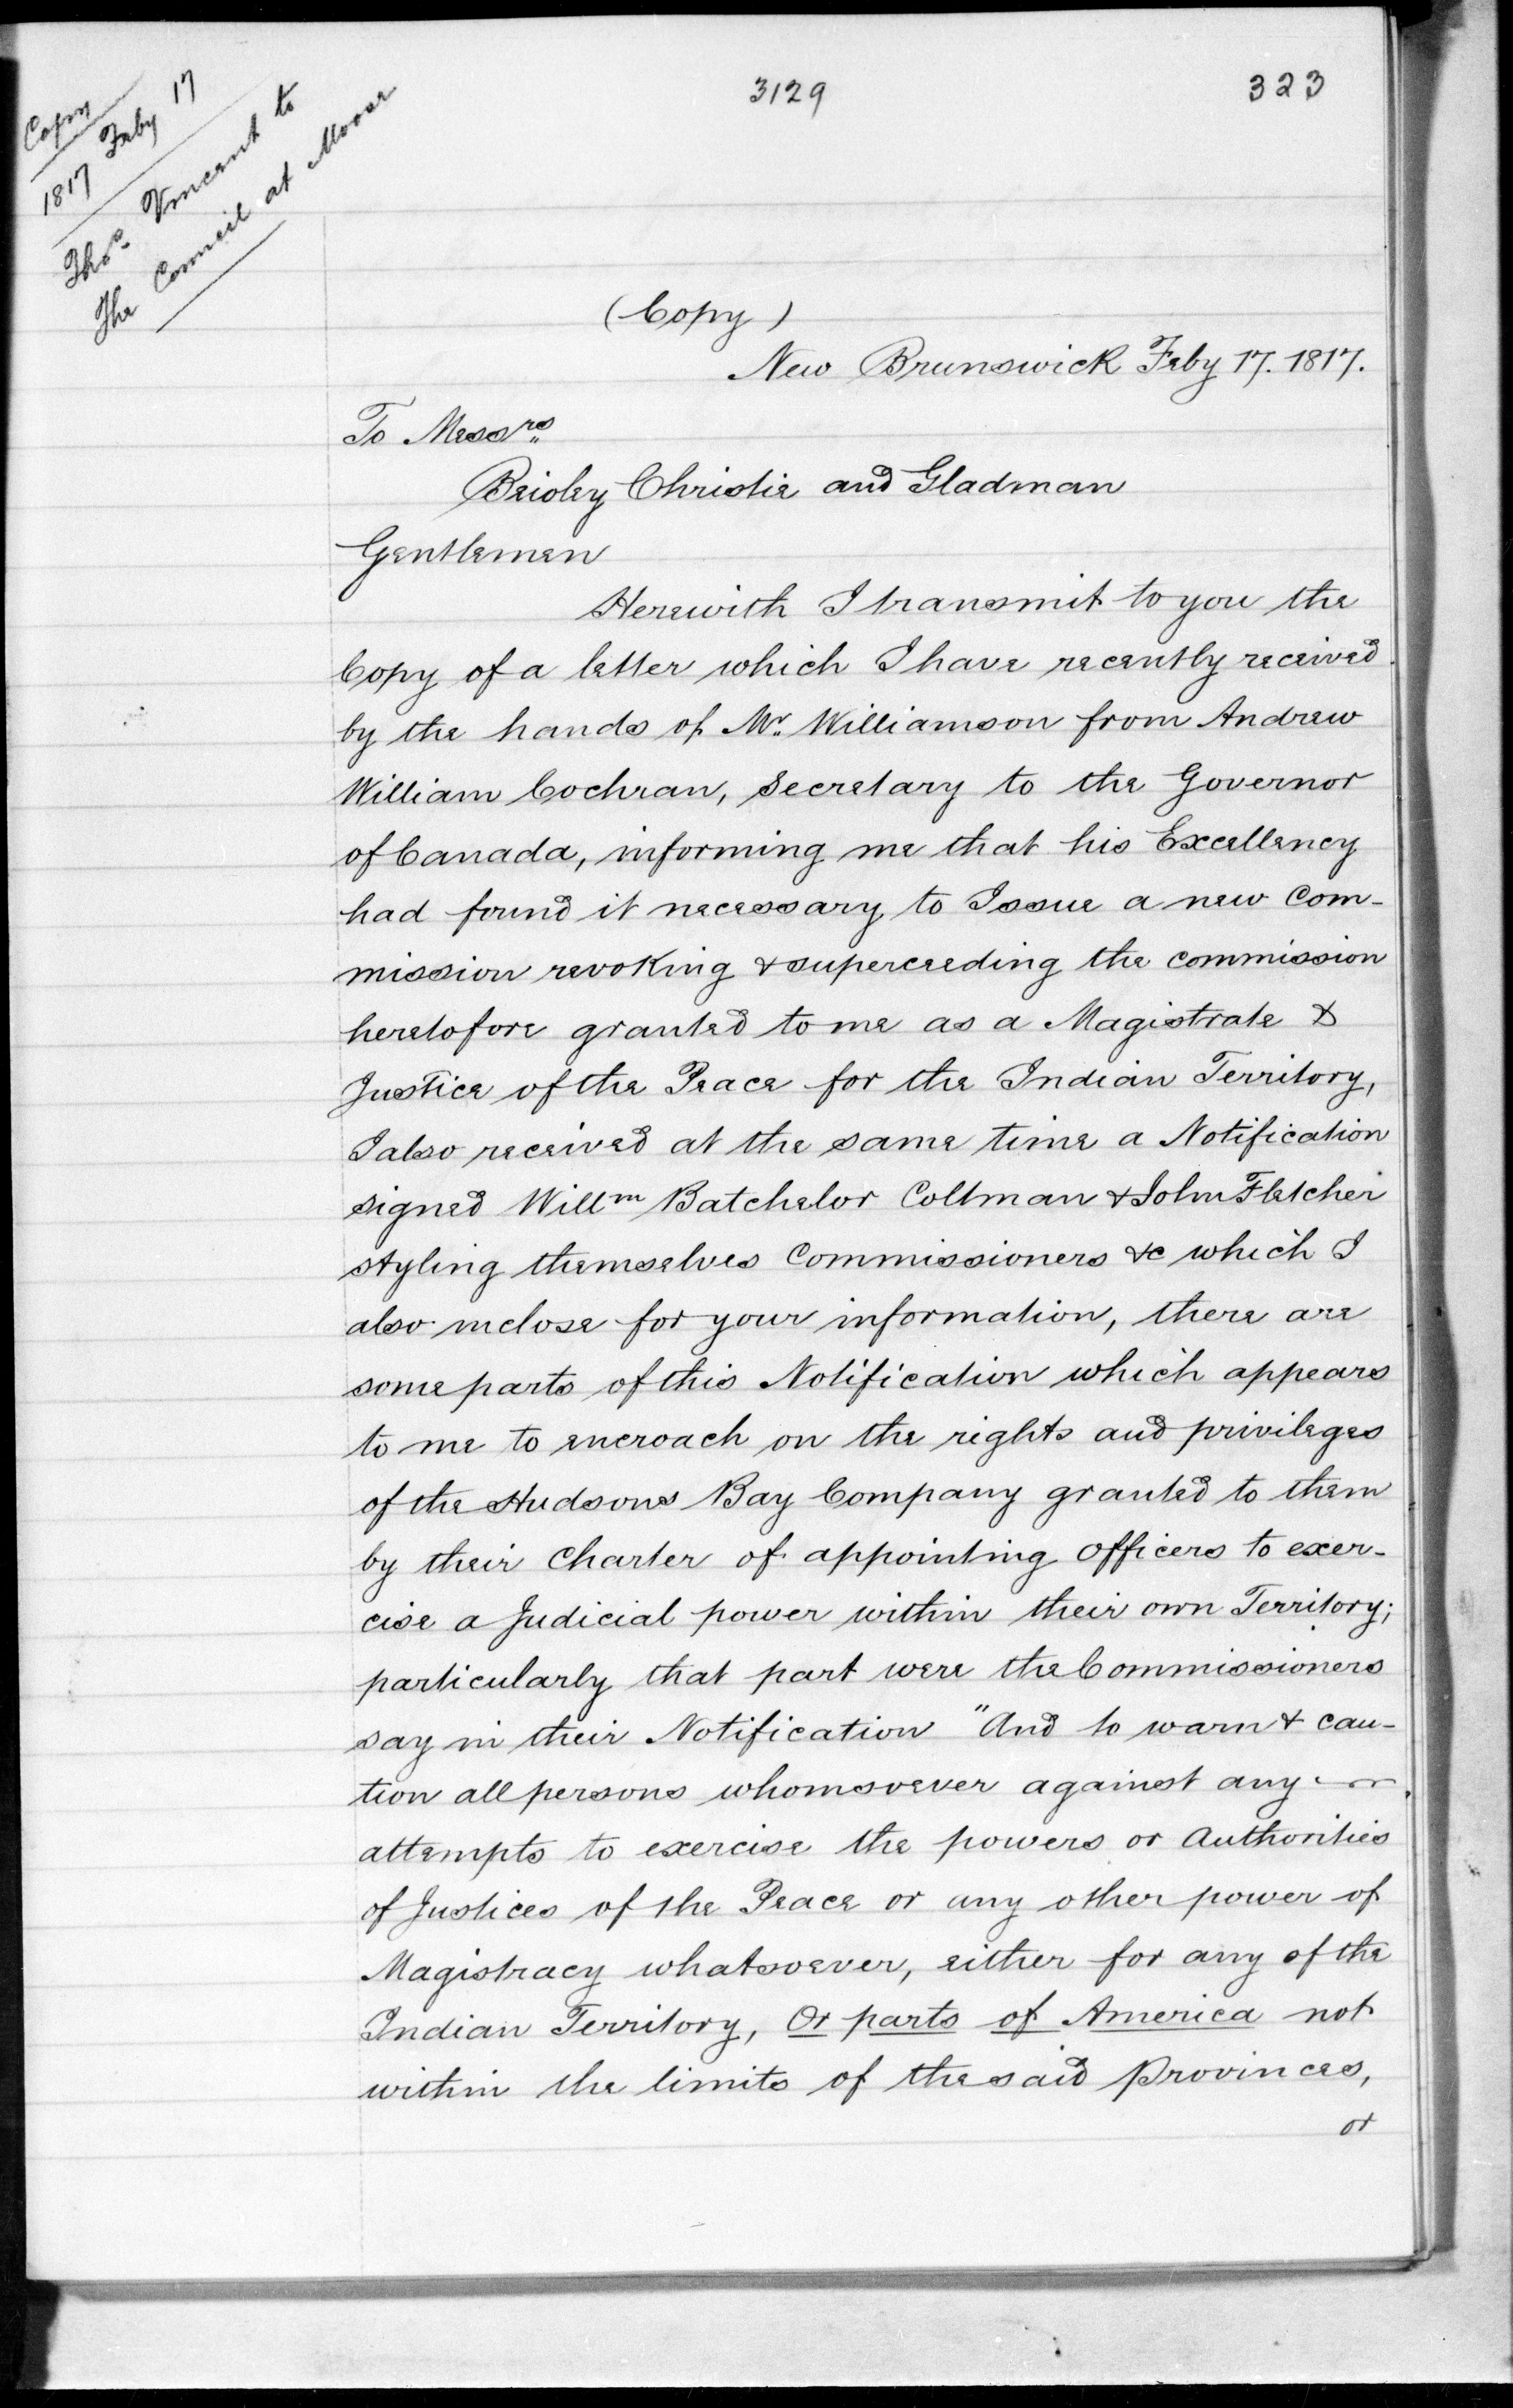 3129
323
Copy
1817 Feby 17
Thos. Vincent to
The Council at Moose
(Copy)
New Brunswick Feby 17. 1817.
To Messrs
Beioley Christie and Gladman
Gentlemen
Herewith I transmit to you the
Copy of a letter which I have recently received
by the hands of Mr. Williamson from Andrew
William Cochran, Secretary to the Governor
of Canada, informing me that his Excellency
had found it necessary to Issue a new Com-
mission revoking & superceeding the commission
heretofore granted to me as a Magistrate &
Justice of the Peace for the Indian Territory,
I also received at the same time a Notification
signed Willm Batchelor Coltman & John Fletcher
styling themselves Commissioners &c which I
also inclose for your information, there are
some parts of this Notification which appears
to me to encroach on the rights and privileges
of the Hudsons Bay Company granted to them
by their Charter of appointing Officers to exer-
cise a Judicial power within their own Territory;
particularly that part were the Commissioners
say in their Notification "And to warn & cau-
tion all persons whomsoever against any
attempts to exercise the powers or Authorities
of Justices of the Peace or any other power of
Magistracy whatsoever, either for any of the
Indian Territory, Or parts of America not
within the limits of the said Provinces,
or